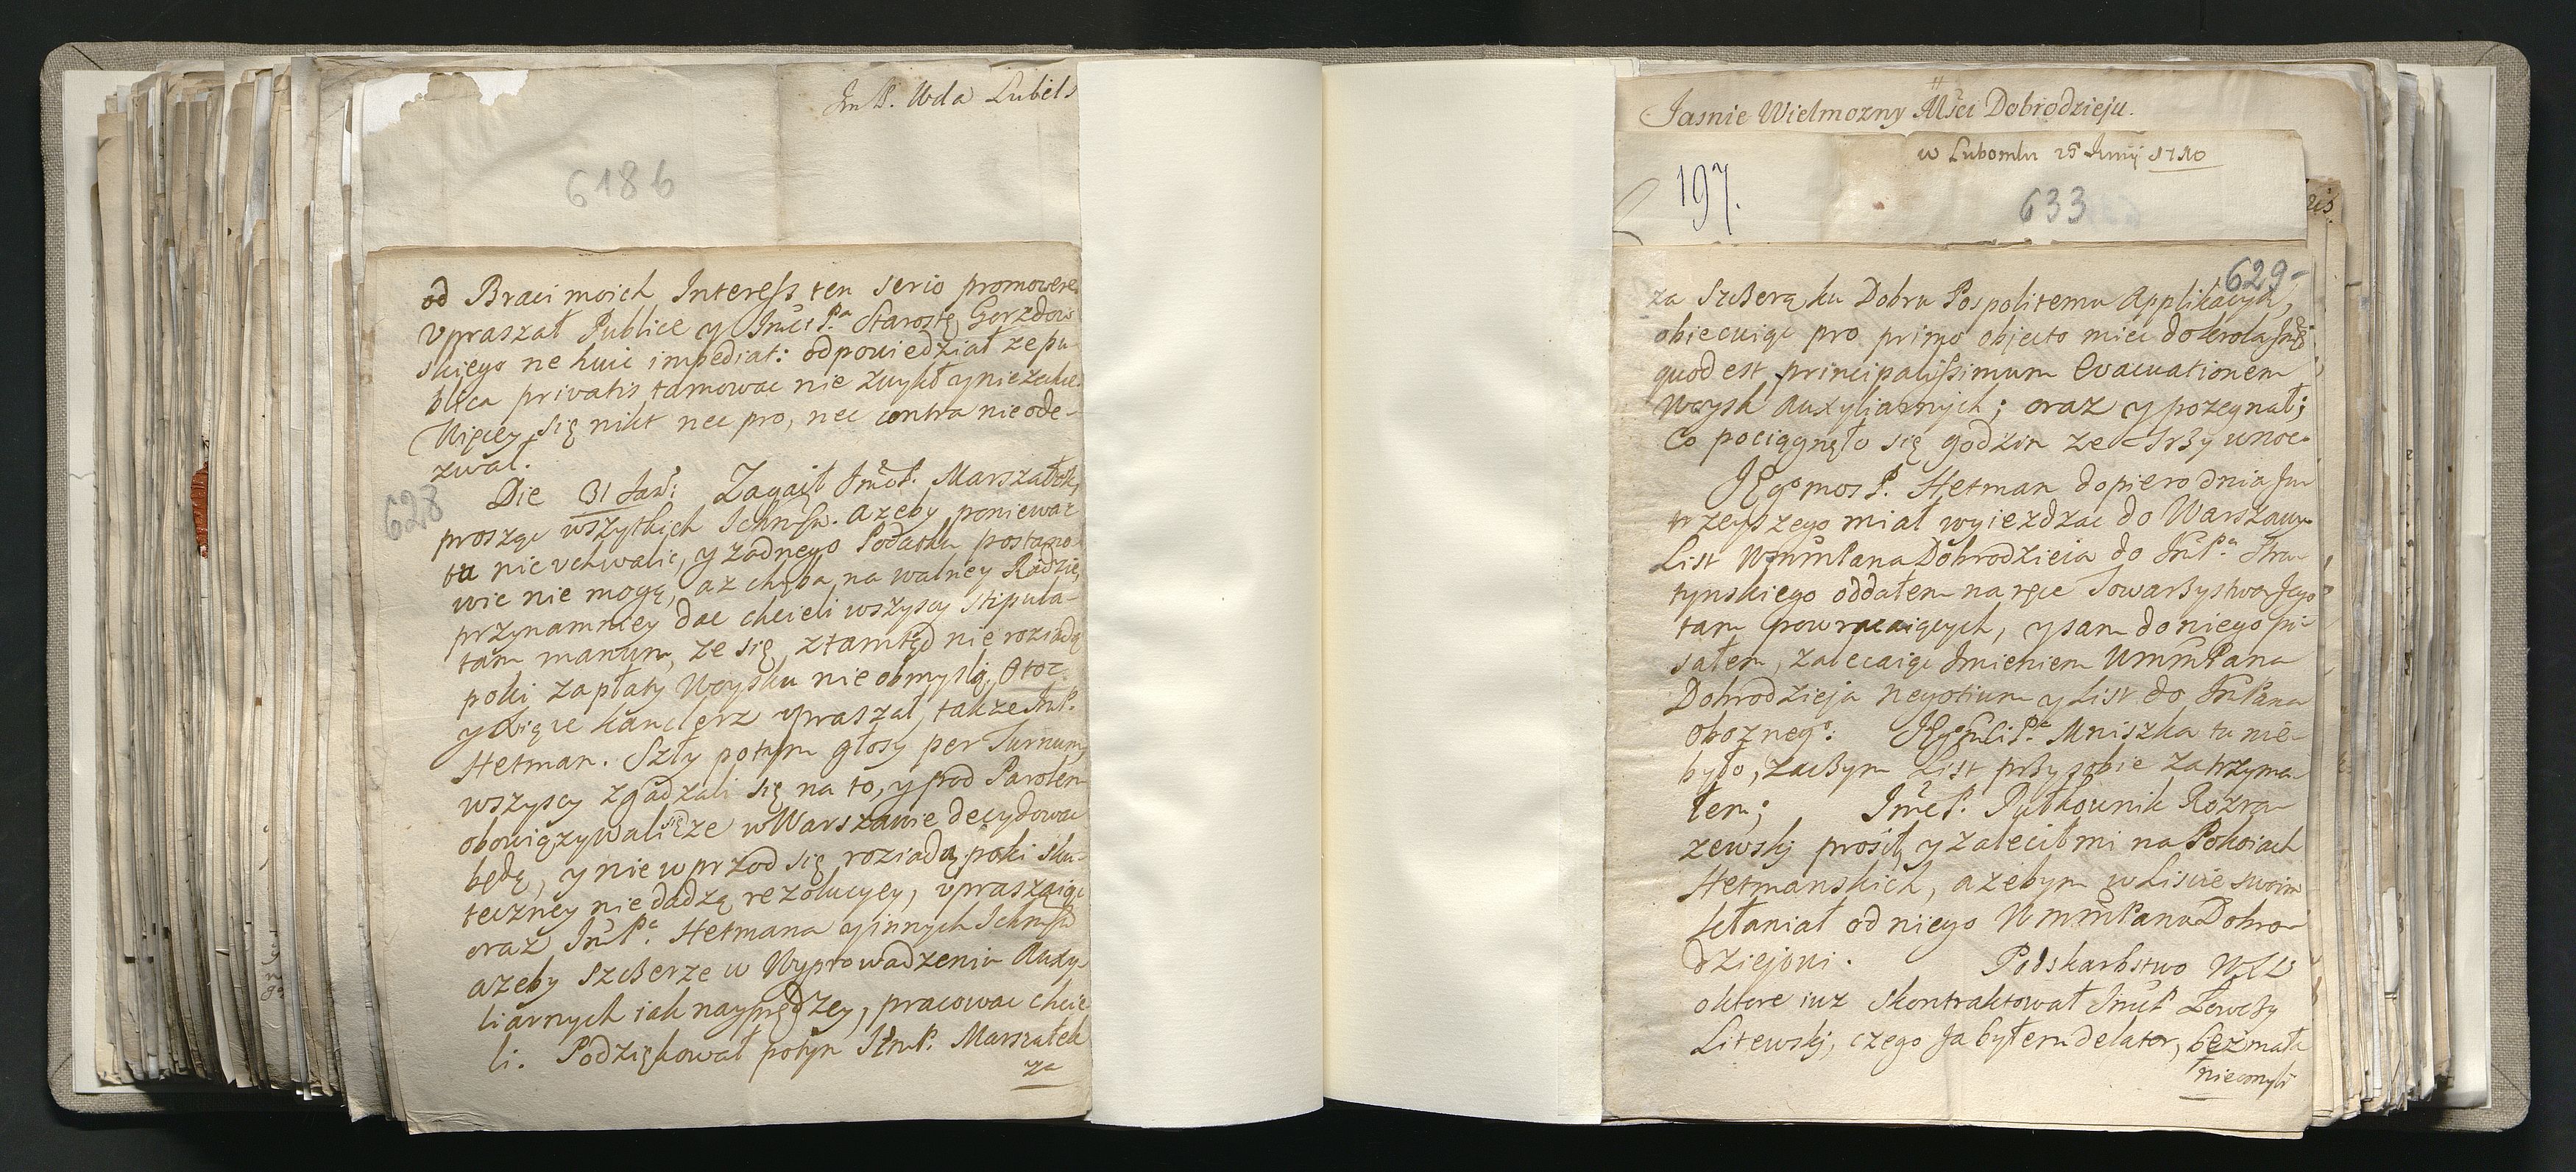 Im P. Wda Lubels
6186
od Braci moich Interess ten serio promowere
Vpraszał Publice y Imći P.ª Starostę Gorzdow
skiego ne huic impediat: odpowiedział ze pu-
blica privatis tamowac nie zwykł y nie zechce.
Więcey się nikt nec pro, nec contra nie ode-
zwał.
628
Die 31 Jan: Zagaił Jmć P. Marszałek,
proszge wszytkich Ichmsw. azeby poniewaz
tu nic vchwalic, y zadnego Podatku postano-
wic nie mogą, az chyba na walney Radzie,
przynamniey dac chcieli wszyscy stipula-
tam manum, ze się ztamtąd nie roziadą
poki zapłaty Woysku nie obmyslą. Otoz
y Xiąze Kanclerz vpraszał, takze Im P.
Hetman. Szły potym głosy per Turnum
wszyscy zgadzali się na to, y pod Parolem
obowiązywali się ze w Warszawie decydowac
będą, y nie wprzod się roziadą poki sku-
teczney nie dadzą rezolucyey, vpraszaiąc
oraz Im P.ª Hetmana y innych Ichmsw
azeby szczerze w Wyprowadzeniu Auxy-
liarnych iak nayprędzey, pracowac chcie
li. Podziękował potym Jmć P. Marszałek
za
Jasnie Wielmozny Mści Dobrodzieju.
w Lubomlu 25 Junij 1710
197.
633
629-
za Szczerą ku Dobru Pospolitemu Applikacyą,
obiecuiąc pro primo objecto miec do krola Jmci
quod est principalissimum Evacuationem
Woysk Auxyliarnych; oraz y pozegnał;
Co pociągnęło się godzin ze trzy w noc.
JEgomos P. Hetman dopiero dnia Ju
trzeyszego miał wyiezdzac do Warszawy.
List WMMPana Dobrodzieia do Im P.ª
tynskiego oddałem na ręce Towarzystwa Jego
tam powracaiących, y sam do niego pi-
sałem, zalecaiąc Jmieniem WMMPana
Dobrodzieja negotium y List do Im Pana
Oboznego: JEgomći P.ª Mniszka tu nie
było, zaczym List przy sobie zatrzyma-
łem; Jmć P. Pułkownik Rozra-
zewskj prosił, y zalecił mi na Pokoiach
Hetmanskich, azebym w Liscie swoim
kłaniał od niego WMMPanu Dobro-
dziejowi. Podskarbstwo WXL
o ktore iuz skontraktował Jmć P. Łowczy
Litewskj, czego Ja byłem delator, bez mała
nieomyli